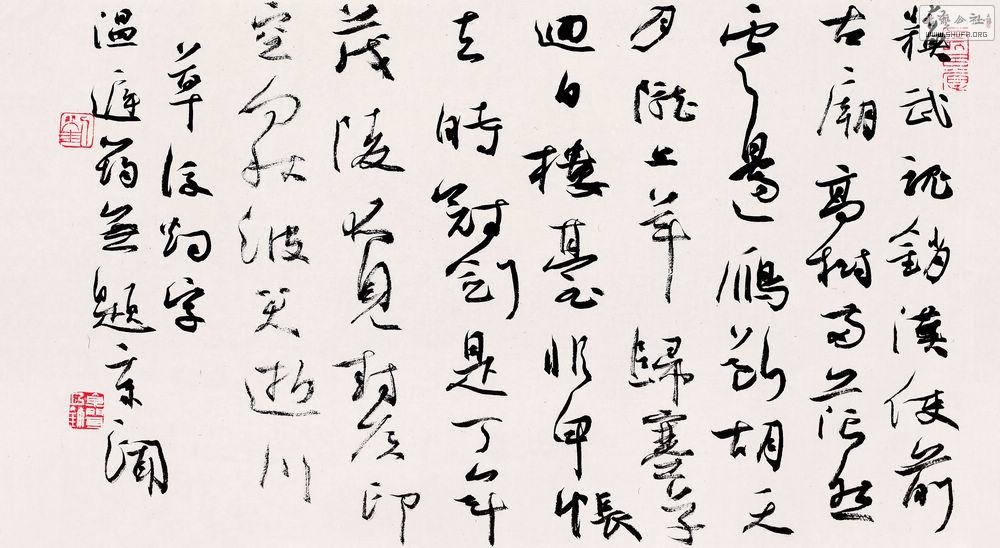 蘇武魂銷漢使前
古廟高樹兩茫然
雲邊鴈斷胡天
月隴上羊歸塞草
迴日樓臺非甲帳
去時冠劍是丁年
茂陵不見封侯印
空向秋波哭逝川
草後烟字
溫庭筠無題
公社
WWW.SHUFA.ORG